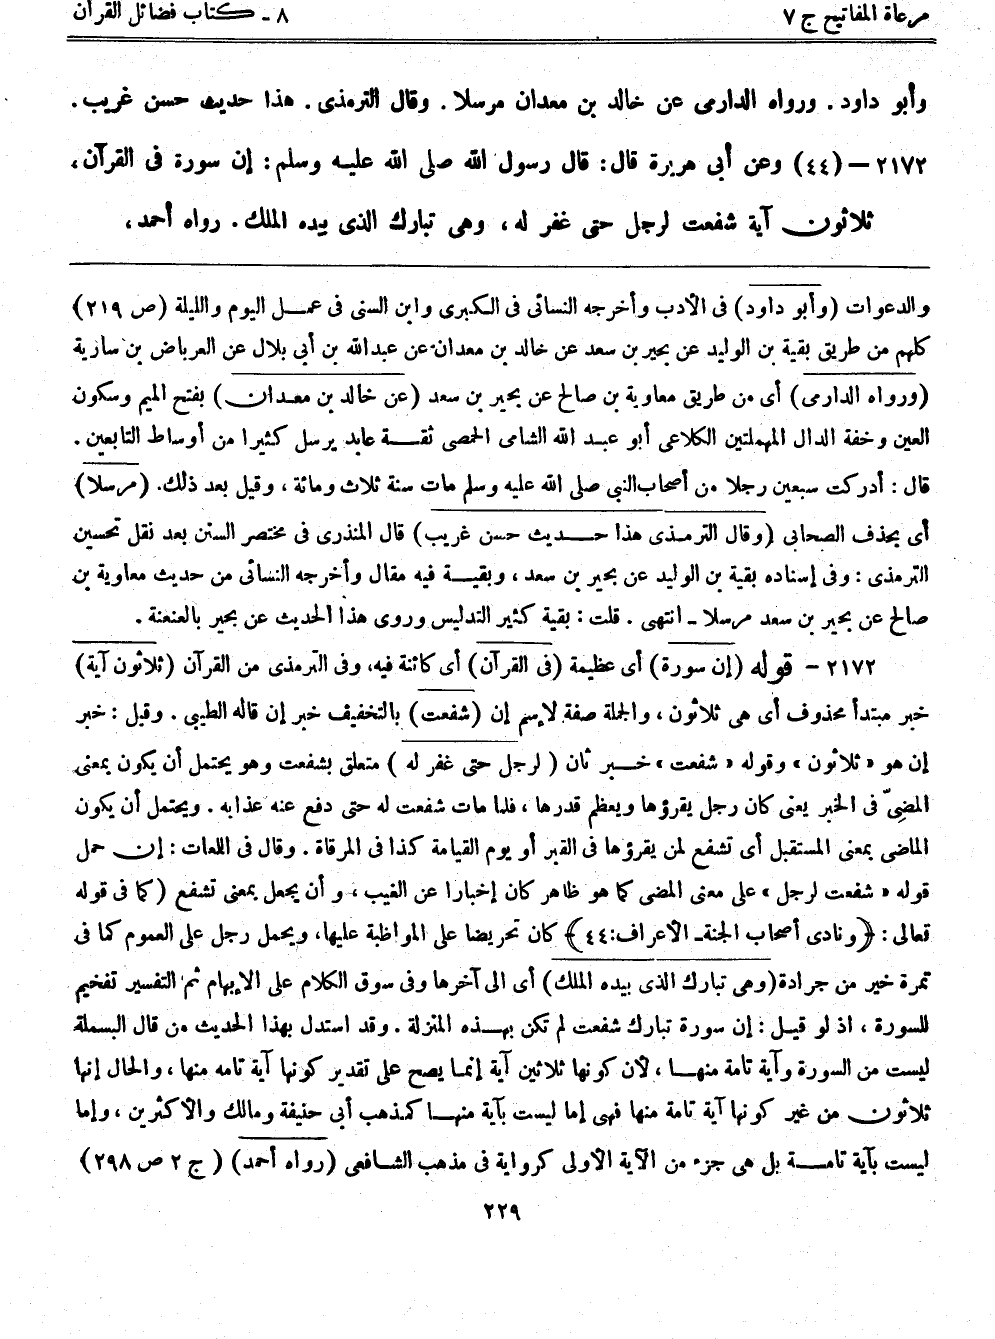 مرعاة المفاتيح ج ٧
٨ - كتاب فضائل القرآن
وأبو داود . ورواه الدارمى عن خالد بن معدان مرسلا . وقال الترمذى . هذا حديث حسن غريب .
٢١٧٢ – (٤٤) وعن أبى هريرة قال : قال رسول الله صلى الله عليه وسلم : إن سورة فى القرآن ،
ثلاثون آية شفعت لرجل حتى غفر له ، وهى تبارك الذى بيده الملك . رواه أحمد ،
والدعوات (وأبو داود) فى الأدب وأخرجه النسائى فى الكبرى وابن السنى فى عمل اليوم والليلة (ص ٢١٩)
كلهم من طريق بقية بن الوليد عن بحير بن سعد عن خالد بن معدان عن عبدالله بن أبي بلال عن العرباض بن سارية
(ورواه الدارمى) أى من طريق معاوية بن صالح عن بحير بن سعد (عن خالد بن معدان) بفتح الميم وسكون
العين وخفة الدال المهملتين الكلاعى أبو عبد الله الشامى الحمصى ثقة عابد يرسل كثيرا من أوساط التابعين .
قال : أدركت سبعين رجلا من أصحاب النبي صلى الله عليه وسلم مات سنة ثلاث ومائة ، وقيل بعد ذلك . (مرسلا)
أى بحذف الصحابى (وقال الترمذى هذا حديث حسن غريب) قال المنذرى فى مختصر السنن بعد نقل تحسين
الترمذى : وفى إسناده بقية بن الوليد عن بحير بن سعد ، وبقية فيه مقال وأخرجه النسائى من حديث معاوية بن
صالح عن بحير بن سعد مرسلا - انتهى . قلت : بقية كثير التدليس وروى هذا الحديث عن بحير بالعنعنة .
٢١٧٢ - قوله (إن سورة) أى عظيمة (فى القرآن) أى كائنة فيه، وفى الترمذى من القرآن (ثلاثون آية)
خبر مبتدأ محذوف أى هى ثلاثون ، والجملة صفة لإسم إن (شفعت) بالتخفيف خبر إن قاله الطيبى . وقيل : خبر
إن هو « ثلاثون » وقوله « شفعت » خبر ثان ( لرجل حتى غفر له ) متعلق بشفعت وهو يحتمل أن يكون بمعنى
المضِىّ فى الخبر يعنى كان رجل يقرؤها ويعظم قدرها ، فلما مات شفعت له حتى دفع عنه عذابه . ويحتمل أن يكون
الماضى بمعنى المستقبل أى تشفع لمن يقرؤها فى القبر أو يوم القيامة كذا فى المرقاة . وقال فى اللمعات : إن حمل
قوله « شفعت لرجل » على معنى المضى كما هو ظاهر كان إخبارا عن الغيب ، و أن يجعل بمعنى تشفع (كما فى قوله
تعالى : ﴿ونادى أصحاب الجنة - الأعراف : ٤٤﴾ كان تحريضا على المواظبة عليها، ويحمل رجل على العموم كما فى
تمرة خير من جرادة (وهى تبارك الذى بيده الملك) أى الى آخرها وفى سوق الكلام على الإبهام ثم التفسير تفخيم
للسورة ، اذ لو قيل : إن سورة تبارك شفعت لم تكن بهذه المنزلة . وقد استدل بهذا الحديث من قال البسملة
ليست من السورة وآية تامة منها ، لأن كونها ثلاثين آية إنما يصح على تقدير كونها آية تامه منها ، والحال إنها
ثلاثون من غير كونها آية تامة منها فهى إما ليست بآية منها كمذهب أبى حنيفة ومالك والأكثرين ، وإما
ليست بآية تامة بل هى جزء من الآية الأولى كرواية فى مذهب الشافعى (رواه أحمد) ( ج ٢ ص ٢٩٨)
٢٢٩